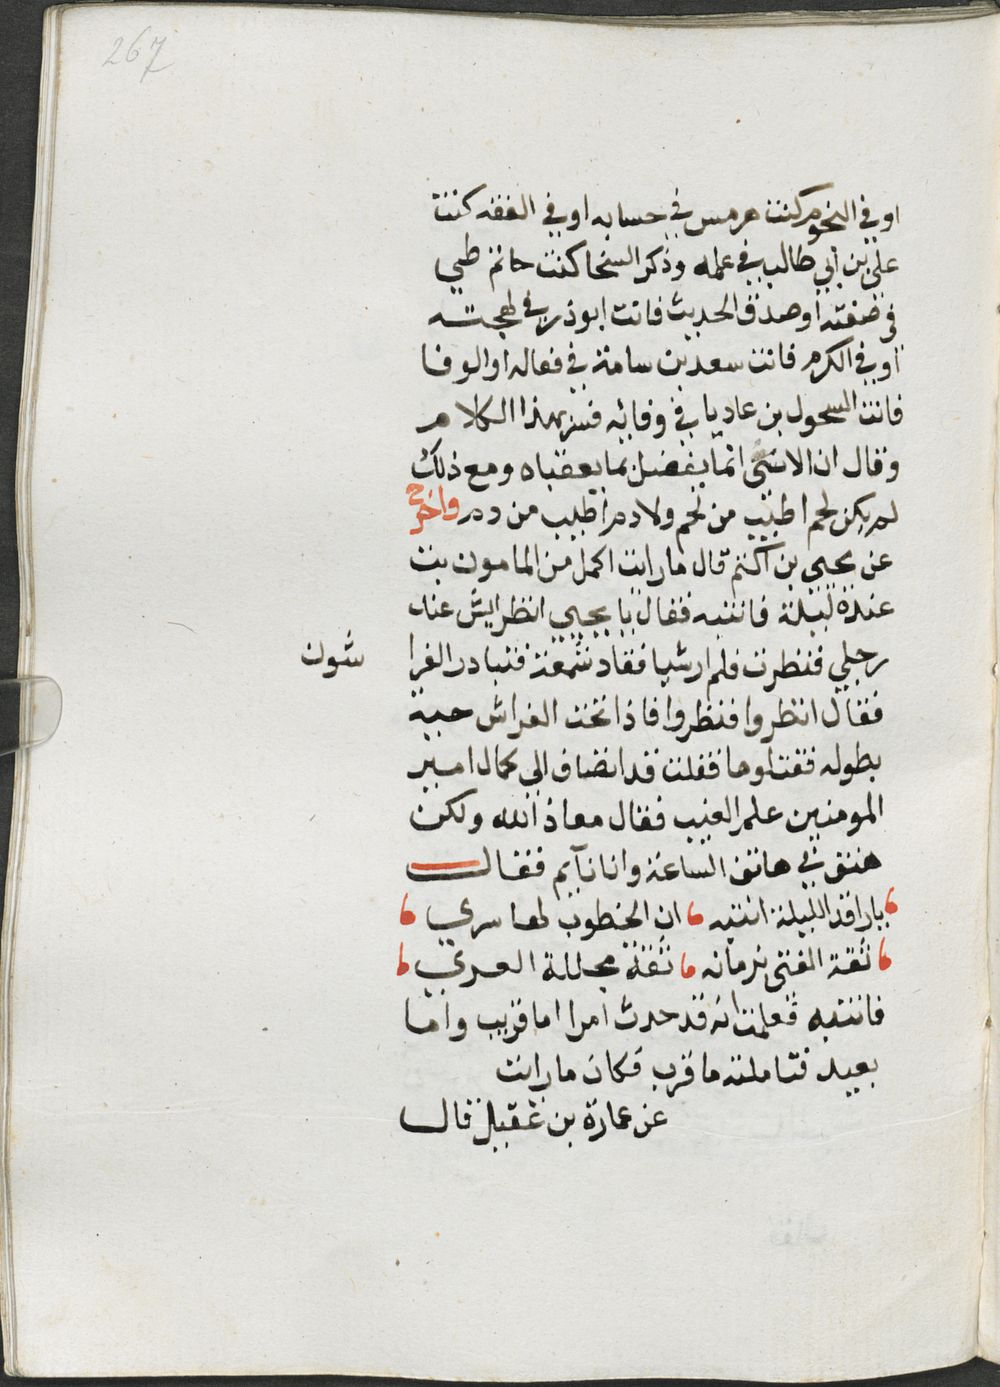 267
او في النجوم كنت هرمس في حسابه او في الفقه كنت
على بن ابي طالب في علمه وذكر السخا كنت حاتم طي
في صفته او صدق الحديث فانت ابو ذر في لهجته
او في الكرم فانت سعد بن سامة في فعاله او الوفا
فانت السحول بن عاديا في وفائه فسر بهذا الكلام
وقال ان الانسى انما يفضل بما يعقباه ومع ذلك
لم يكن لحم اطيب من لحم ولا دم اطيب من دم واخرج
عن يحيى بن اكثم قال ما رايت اكمل من المامون بت
عنده ليلة فانتبه فقال يا يحيي انظر ايش عند
رجلي فنظرت فلم ار شيا فقاد شمعة فتبادر الفرا شون
فقال انظروا فنظروا فاذا تحت الفراش حية
بطوله فقتلوها فقلت قد انضاف الى كمال امير
المومنين علم الغيب فقال معاذ الله ولكن
هتف في هاتف الساعة وانا نآيم فقال
يا راقد الليلة انتبه ، ان الخطوب لها سري ،
ثقة الفتى بزمانه ، ثقة محللة العري ،
فانتبه فعلمت انه قد حدث امرا اما قريب واما
بعيد فتاملت ما قرب فكان ما رايت
عن عمارة بن عقيل قال